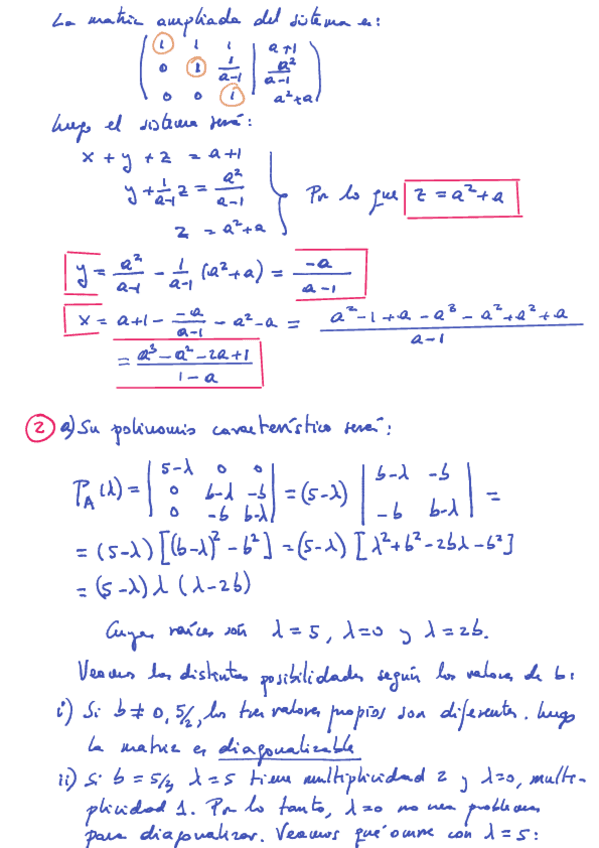 La matriz ampliada del sistema es:
( 1 1 1 | a+1 )
( 0 1 1/(a-1) | a²/(a-1) )
( 0 0 1 | a²+a )
luego el sistema será:
x + y + z = a+1
y + 1/(a-1) z = a²/(a-1)
z = a²+a } Por lo que z = a²+a
y = a²/(a-1) - 1/(a-1) (a²+a) = -a/(a-1)
x = a+1 - (-a)/(a-1) - a² - a = (a²-1+a-a³-a²+a²+a)/(a-1)
= (a³-a²-2a+1)/(1-a)
2 a) Su polinomio característico será:
P_A(λ) = | 5-λ 0 0 ; 0 b-λ -b ; 0 -b b-λ | = (5-λ) | b-λ -b ; -b b-λ | =
= (5-λ) [(b-λ)² - b²] = (5-λ) [λ²+b²-2bλ-b²]
= (5-λ) λ (λ-2b)
Cuyas raíces son λ=5, λ=0 y λ=2b.
Veamos las distintas posibilidades según los valores de b:
i) Si b≠0, 5/2, los tres valores propios son diferentes. luego
la matriz es diagonalizable
ii) Si b=5/2, λ=5 tiene multiplicidad 2 y λ=0, multi-
plicidad 1. Por lo tanto, λ=0 no crea problemas
para diagonalizar. Veamos qué ocurre con λ=5: